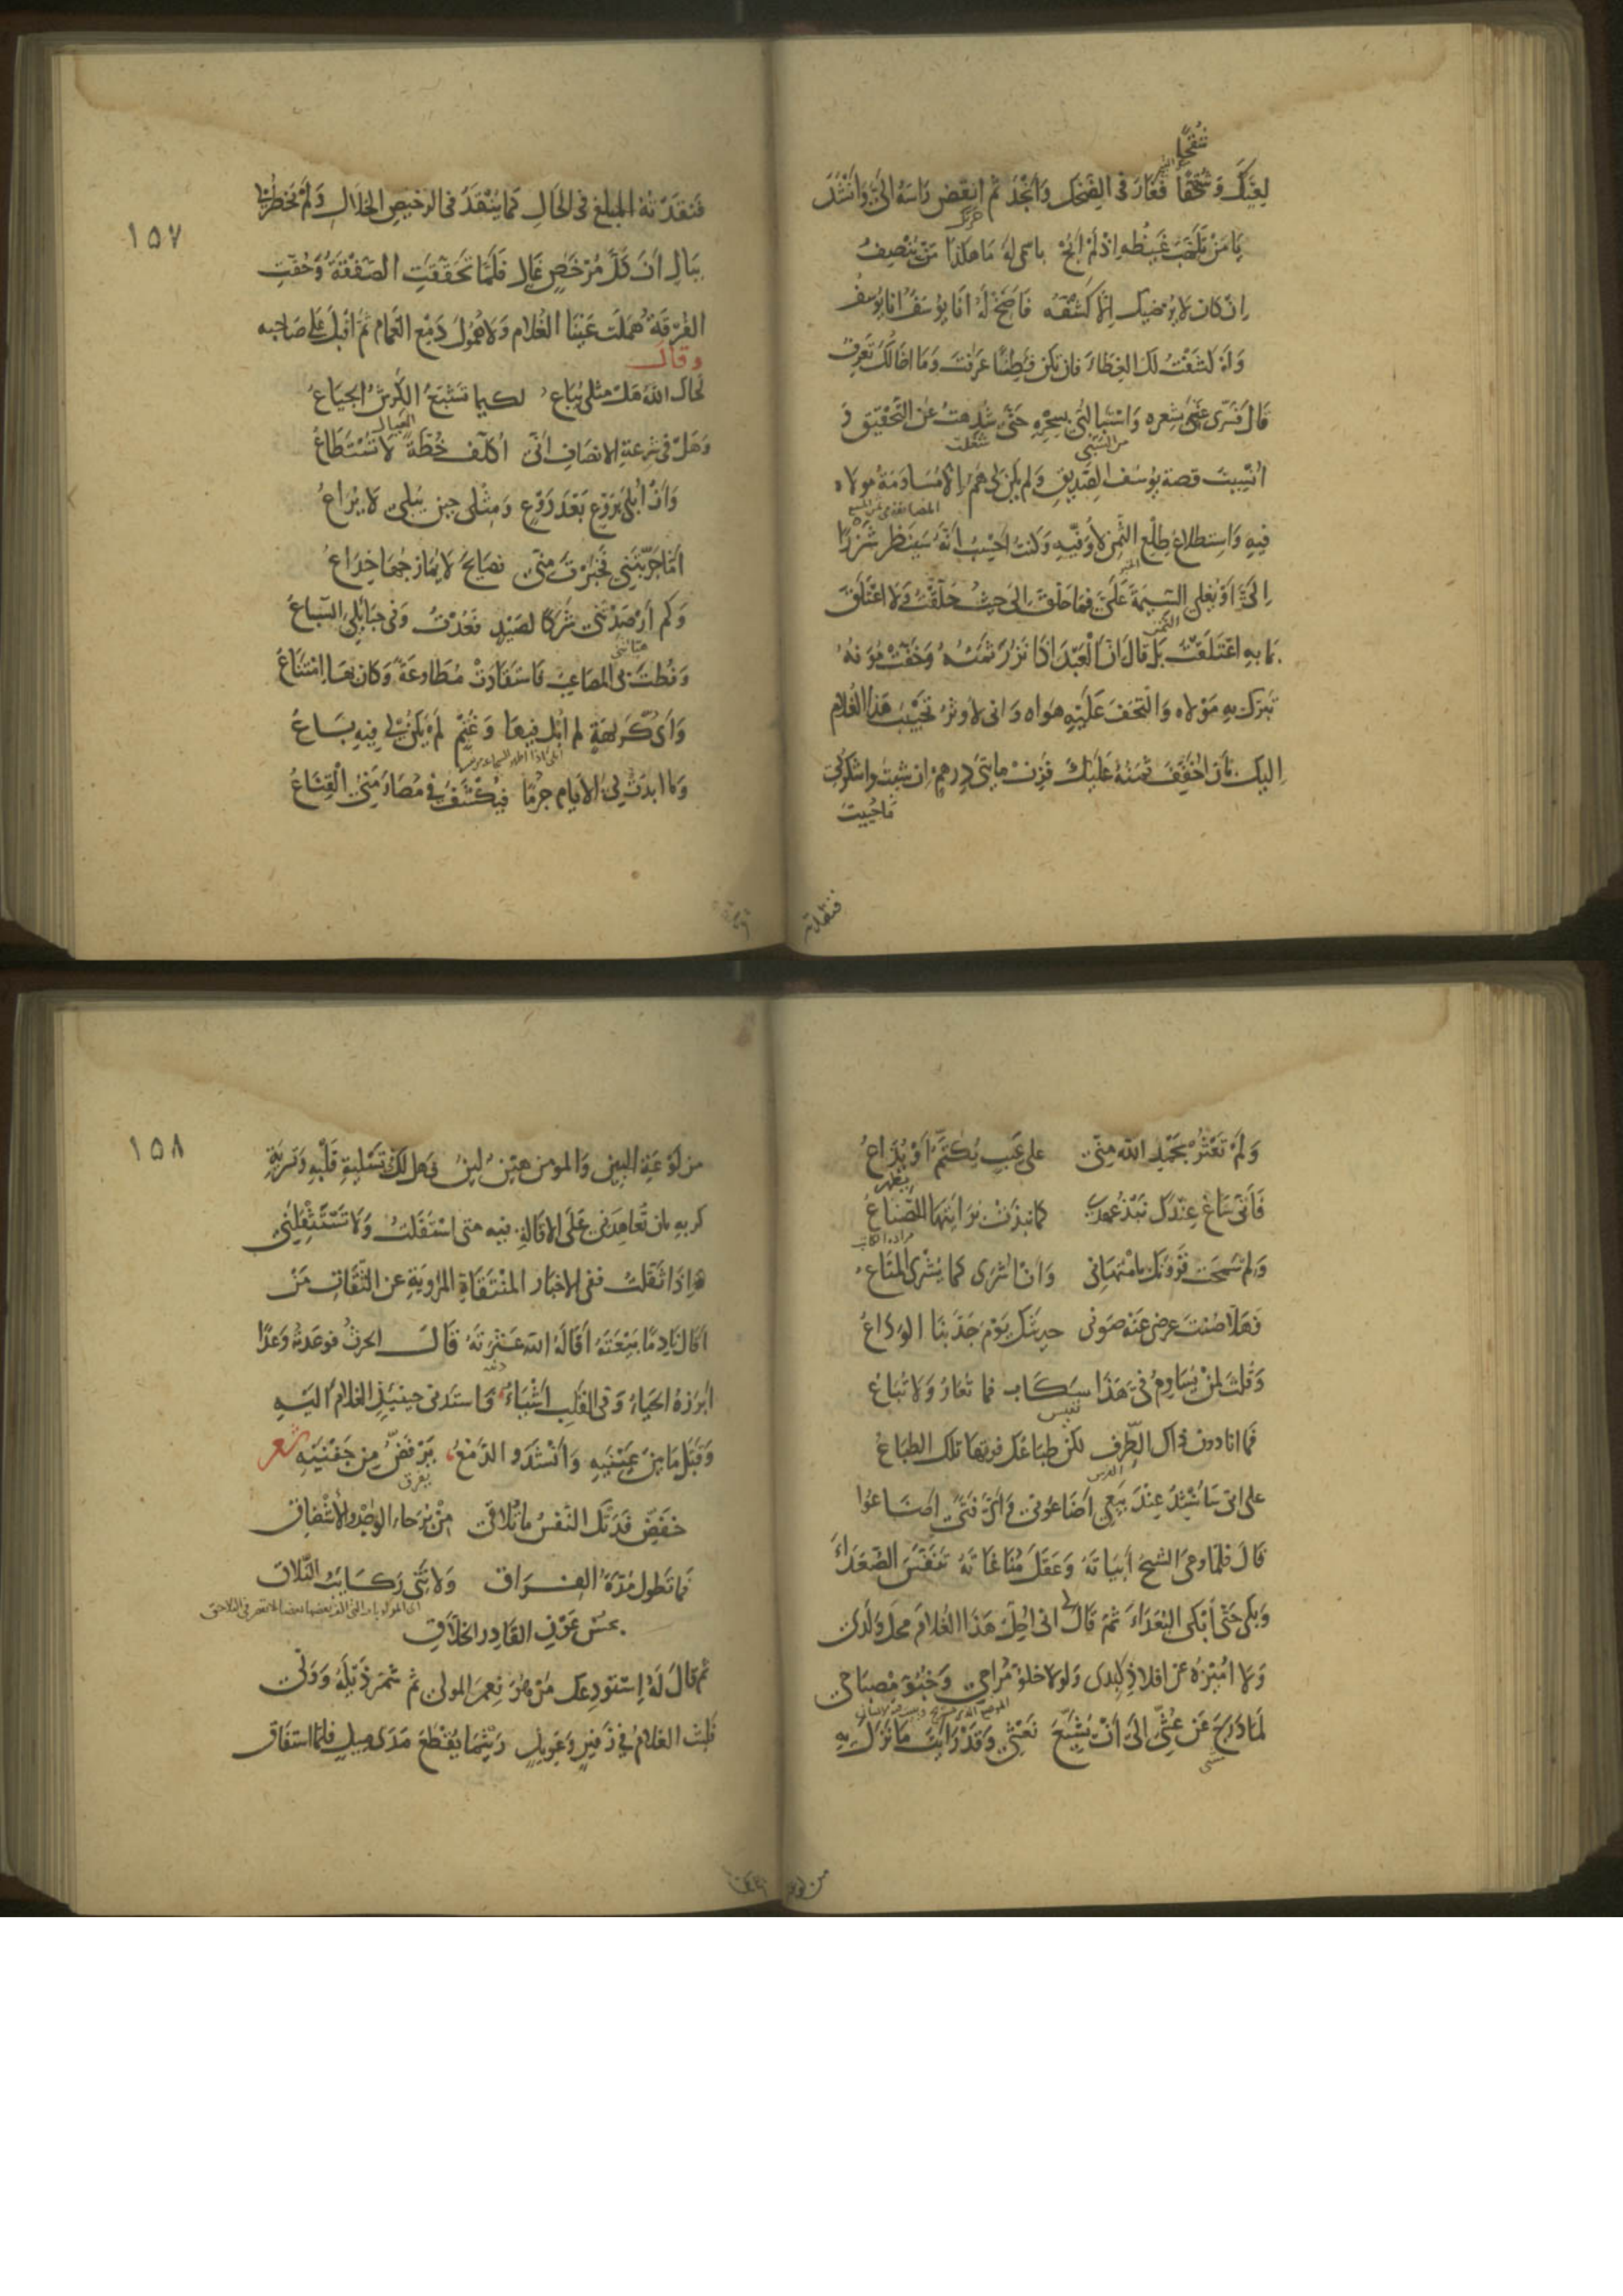 شقحًا
لِعَيِّكَ وَشُقْحًا فَغَارَ فى الضِحْكِ وَاَنْجَدَ ثم انغض رَاسَهُ اِلَىَّ وَاَنْشَدَ
يَا مَنْ تَلَهَّبَ غَيْظُهِ اِذْ لَمْ اَبُحْ باسمى لَهُ مَا هكَذا مَنْ يُنْصِفُ
اِن كان لا يُرضيك اِلَّا كَشْفُهُ فَاَصِخْ لَهُ اَنَا يُوسُفُ اَنَا يُوسُفُ
وَلَقَد كَشَفْتُ لَكَ الغِطَاءَ فان تكن فَطِنًا عَرَفْتَ وَمَا اخَالُكَ تَعرِفُ
قال فَسَرَّى عَتْبِى بِشِعره وَاسْتَبَا لُبِّى بِسِحْرِهِ حَتَّى شُدِهتُ عَنِ التَّحْقيقِ وَ
من السبى شغلت
اُنْسِيتُ قصة يُوسُف الصِّدِيقِ وَلم يكن لى هَمٌّ اِلَّا مُسَاوَمَةُ مَولاه
فِيهِ وَاستِطلاعُ طِلْعِ الثَّمنِ لِاُوَفِّيهِ وَكنتُ اَحْسِبُ اَنَّهُ سَيَنظر شَزْرًا
اِلَىَّ اَوْ يُغلى السِّيمَةَ عَلَىَّ فما حَلَّقَ اِلى حيثُ حَلَّقْتُ وَلا اعْتَلَقَ
بمَا بهِ اعْتَلَقْتُ بَلْ قَالَ انّ الْعَبْدَ اذَا نَزُرَ ثَمَنُهُ وَخَفَّتْ مُؤَنهُ
تبرّك بهِ مَوْلاه وَالْتَحَفَ عَلَيْهِ هَوَاه وَانى لاُوثِرُ تَحْبِيْبَ هَذا الغُلامِ
اِليكَ بِاَن اُخَفِّفَ ثمَنهُ عَلَيكَ فَزِنْ مايتَىْ دِرهمٍ ان شيت واشكرلى
مَا حُييت
فنقدته
١٥٧
فَنقَدْتهُ المَبْلَغ فى الحَالِ كما يُنْقَدُ فى الرخيصِ الحَلالِ وَلَمْ تَخطُر لى
بِبَالٍ اَنَّ كُلَّ مُرْخَصٍ غَالٍ فَلَمَّا تَحَقّقتِ الصَّفْقَةُ وَحُقّتِ
الفُرْقَةُ هَمَلَت عَيْنَا الغُلام وَلا هُمُولَ دَمْعِ الغَمام ثم اقبل عَلى صَاحِبه
وقال
لحاك اللهُ هَلْ مِثلى يُبَاعُ لكيما تَشْبَعُ الكَرِشُ الجِيَاعُ
العيال
وَهَلْ فى شِرعَةِ الانصَافِ انّى اُكلّفُ خُطّةً لا تُسْتَطَاعُ
وَاَنْ اُبْلَى بِرَوْعٍ بَعْدَ رَوْعٍ وَمِثْلى حِينَ يُبلى لا يُرَاعُ
اَمَا جَرّبْتَنِى فَخَبَرْتَ مِنِّى نَصَايِحَ لَا يُمَازِجُهَا خِدَاعُ
وَكم اَرْصَدْتَنى شَرَكًا لِصَيْدٍ فَعُدْتُ وَفى حَبَايِلى السِّباعُ
وَنُطْتَ بِى المَصَاعِبَ فَاسْتَقَادَتْ مُطَاوِعَةً وَكان بهَا امْتِنَاعُ
وَاَىُّ كَرِيهَةٍ لم اُبْلِ فيهَا وَغُنْمٍ لَم يَكن لى فِيهِ بَاعُ
وَمَا ابدَتْ لِىَ الاَيّام جُرْمًا فيُكشَفُ فى مُصَارَمَتِى الْقِنَاعُ
وَلَمْ تَعْثُرْ بحَمْدِ اللهِ مِنّى على عَيبٍ يُكتَّمُ اَوْ يُذَاعُ
يظهر
فَاَنَّى سَاغَ عِنْدَكَ نَبْذُ عهدى كما نبذَتْ بُرَايَتَهَا الصَّنَاعُ
وَلِم سَمَحَتْ قَرُونُكَ بِامْتِهَانى وَاَنْ اُشْرَى كما يُشْرَى المَتَاعُ
فَهَلَّا صُنْتَ عِرضى عَنْهُ صَوْنى حديثَكَ يَوْمَ جَدَّ بنَا الوَدَاعُ
وَقُلْتَ لِمَنْ يُسَاوِمُ فىَّ هَذَا سَكَابِ فما تُعَارُ وَلا تُبَاعُ
نفيس
فما انا دون ذاك الطّرف لكن طباعُك فوقها تلك الطِبَاعُ
الفرس
على انى سَاُنْشِدُ عِنْدَ بَيْعِى اَضَاعُونى وَاَىَّ فَتًى اَضَاعُوا
قالَ فلمّا وعَى الشيخ اَبْيَاتَهُ وَعَقَلَ مُنَاغَاتَهُ تَنَفّسَ الصُّعَدَاءَ
وَبكى حَتّى اَبْكى البُعَدَاءَ ثُمّ قَالَ لى انى اُحِلُّ هَذَا الغُلَامَ مَحَلَّ وَلَدى
وَلا اُمَيِّزُهُ عن افلاذِ كَبِدى وَلولا خلوُّ مُرَاحِى وَخُبُوُّ مِصْبَاحِى
لَمَا دَرَجَ عَن عُشِّى اِلَى اَنْ يُشَيِّعَ نَعْشِى وَقَدْ رَايْتَ مَا نَزَلَ بهِ
من لوعة
١٥٨
من لَوْعَةِ البينِ وَالمومن هَيّنٌ لينٌ فهل لك فى تَسْلِيَةِ قَلْبِهِ وَتَسريَةِ
كربهِ بان تُعاهِدَنى عَلَى الاقالةِ فيه متى اسْتَقَلتُ وَلَا تَسْتَثْقِلَنِى
اِذَا ثَقَّلتُ ففى الاخبَار المُنْتَقَاةِ المَرْوِيَةِ عن الثِّقَاتِ مَنْ
اَقَالَ نَادِمًا بَيْعَتَهُ اَقَالَهُ اللهُ عَثْرَتَهُ قَالَ الحرثُ فوعدته وَعدًا
اَبْرَزَهُ الحَيَاءُ وَفى القلبِ اَشْيَاءُ فاستَدنى حِينَيِذٍ الغلامَ اليهِ
وَقَبَّلَ مَا بَينَ عَيْنَيهِ وَاَنْشَدَ والدَّمْعُ يَرْفَضُّ مِن جَفْنَيهِ شعر
خَفِّضْ فَدَتْكَ النَّفسُ مَا تُلاقى مِنْ بُرَحاءِ الوَجْدِ والاِشْفاقِ
فما تَطول مُدّةُ الفِراقِ وَلا تنى رَكَايبُ التَّلاقِ
بحُسْنِ عَوْنِ القَادِرِ الخَلّاقِ
ثم قالَ لَهُ اِستَودِعكَ مَنْ هُوَ نِعمَ المولى ثمّ شَمّر ذَيْلَهُ وَوَلى
فلبثَ الغلامُ فى زَفيرٍ وَعَوِيلٍ رَيْثَمَا يَقْطَعُ مَدَى مِيلٍ فلمّا استفَاقَ